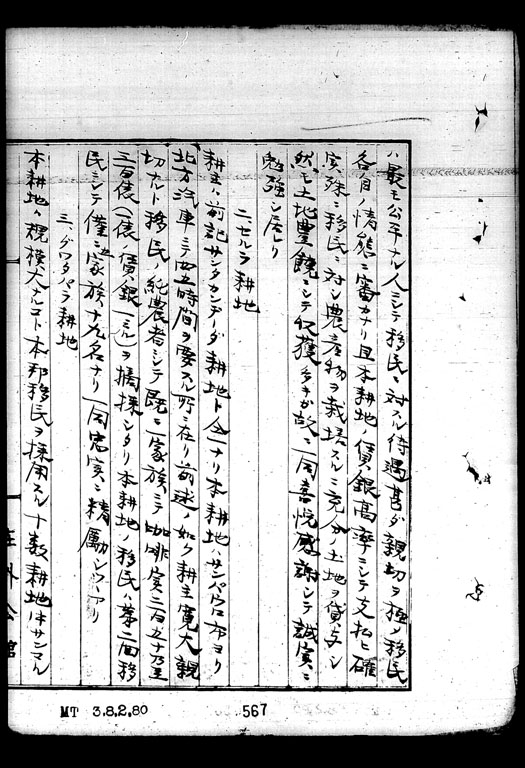 ハ最モ公平ナル人ニシテ移民ニ対スル待遇甚ダ親切ヲ極メ移民
各自ノ情態ニ審カナリ且本耕地ノ賃銀高率ニシテ支払ヒ確
実殊ニ移民ニ対シ農産物ヲ栽培スルニ充分ノ土地ヲ貸与シ
然モ土地豊饒ニシテ収獲多キガ故ニ一同喜悦感謝シテ誠実ニ
勉強シ居レリ
二、セルラ耕地
耕主ハ前記サンタカンデーダ耕地ト仝一ナリ本耕地ハサンパウロ市ヨリ
北方汽車ニテ四五時間ヲ要スル所ニ在リ前述ノ如ク耕主寛大親
切ナルト移民ノ純農者ニシテ既ニ一家族ニテ珈琲実二百五十乃至
三百俵(一俵ノ賃銀一ミル)ヲ摘採シタリ本耕地ノ移民ハ第二回移
民ニシテ僅ニ家族十九名ナリ一同忠実ニ精励シツヽアリ
三、グワタパラ耕地
本耕地ハ規模大ナルコト本邦移民ヲ採用スル十数耕地中サンマル
在外公館
MT 3.8.2.80
567